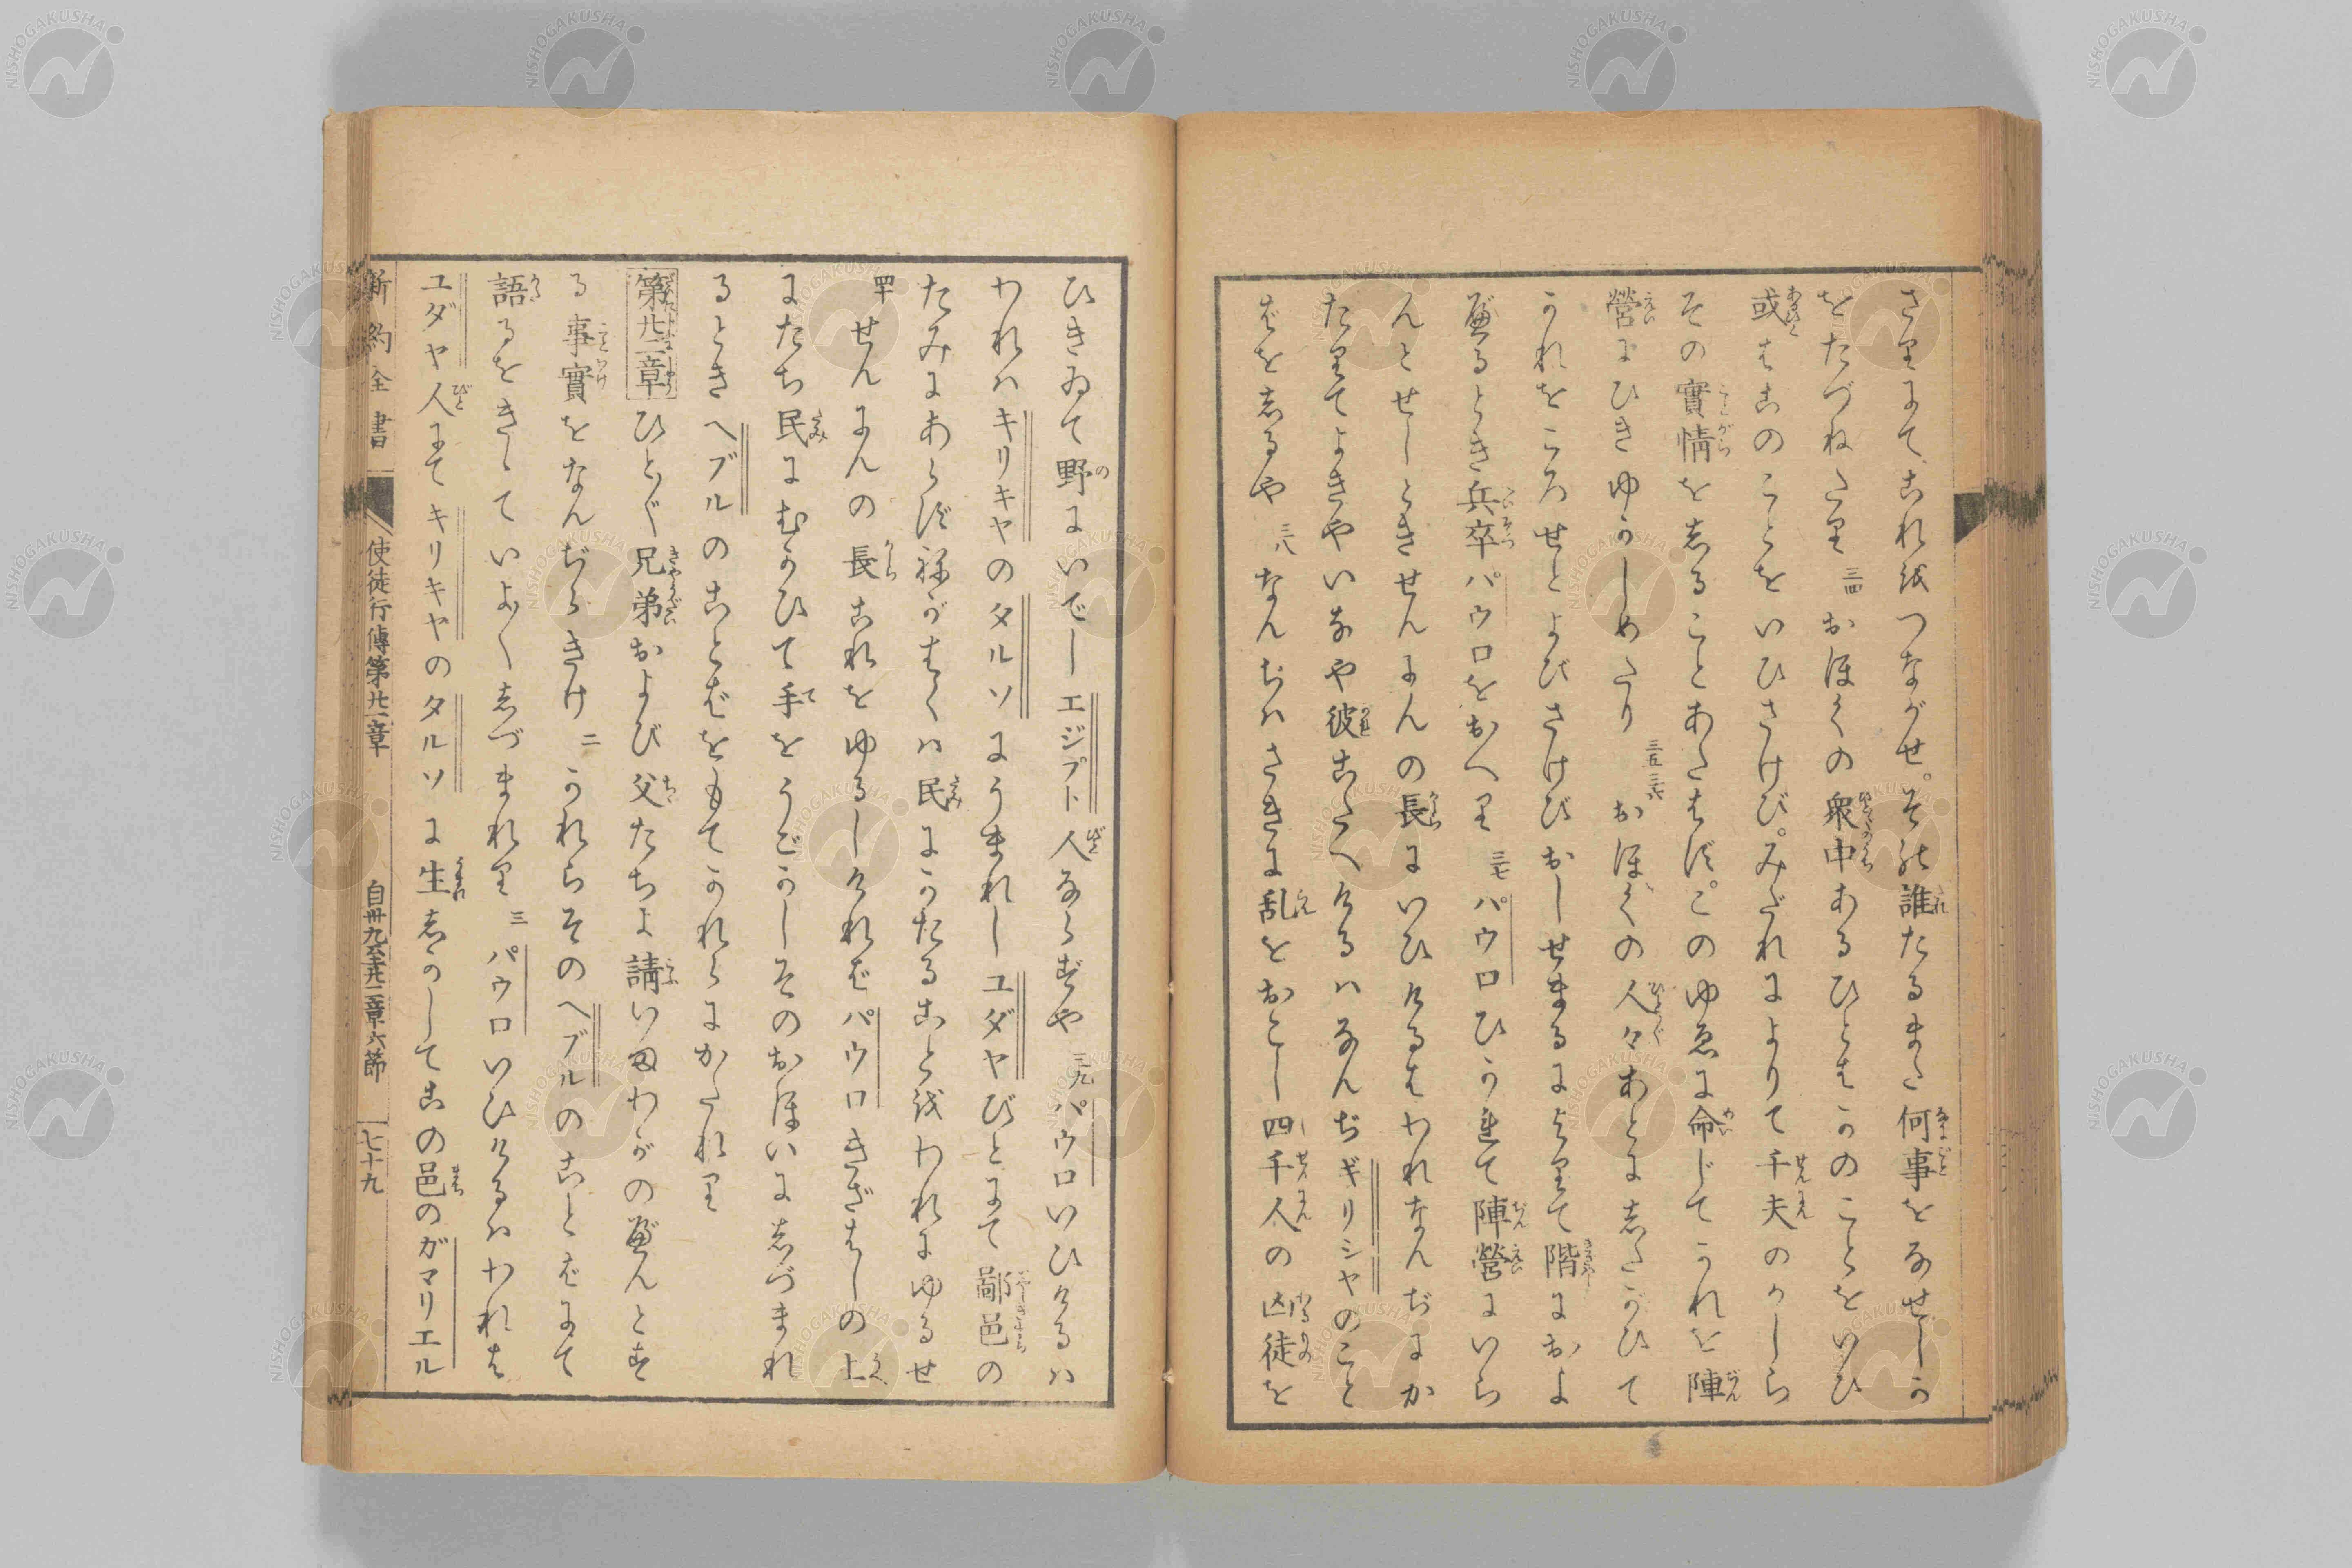 さりにて、これをつながせ。その誰たるまた何事をなせしか
をたづねたり 三四 おほくの衆中あるひとはかのことをいひ
或はこのことをいひさけび。みだれによりて千夫のかしら
その實情をしることあたはず。このゆゑに命じてかれを陣
營にひきゆかしめたり 三五三六 おほくの人々あとにしたがひて
かれをころせとよびさけびおしせまるによりて階におよ
べるとき兵卒パウロをおへり 三七 パウロひかれて陣營にいら
んとせしときせんにんの長にいひけるはわれなんぢにか
たりてよきやいなや彼こたへけるハなんぢギリシヤのこと
ばをしるや 三八 なんぢハさきに乱をおこし四千人の凶徒を
ひきゐて野にいでしエジプト人ならずや 三九 パウロいひけるハ
われハキリキヤのタルソにうまれしユダヤびとにて鄙邑の
たみにあらず祢がはくハ民にかたることをわれにゆるせ
四十 せんにんの長これをゆるしければパウロきざはしの上
にたち民にむかひて手をうごかしそのおほいにしづまれ
るときヘブルのことばをもてかれらにかたれり
第廿二章 ひとびと兄弟および父たちよ請いまわがのべんとす
る事實をなんぢらきけ 二 かれらそのヘブルのことばにて
語るをきゝていよ〳〵しづまれり 三 パウロいひけるハわれは
ユダヤ人にてキリキヤのタルソに生しかしてこの邑のガマリエル
新約全書 使徒行傳第廿一章 自卅九至廿二章六節 七十九
NISHOGAKUSHA